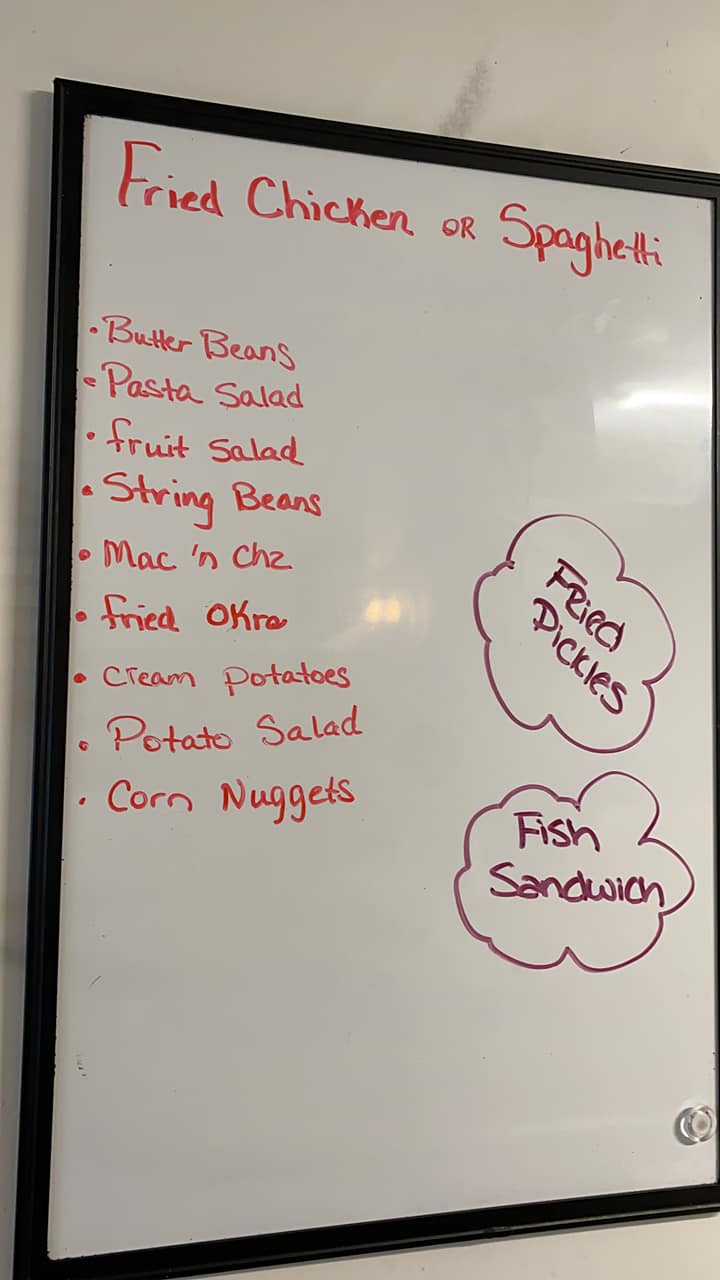 Fried Chicken OR Spaghetti
• Butter Beans
• Pasta Salad
• fruit Salad
• String Beans
• Mac 'n Chz
• fried Okra
• Cream Potatoes
• Potato Salad
• Corn Nuggets
Fried
Pickles
Fish
Sandwich